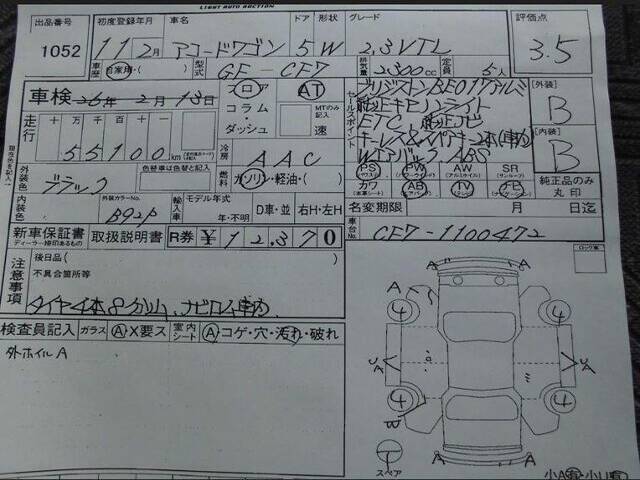 LIGHT AUTO AUCTION
出品番号 初度登録年月 車名 ドア 形状 グレード 評価点
1052 11 2月 アコードワゴン 5 W 2,3VTL 3.5
車歴 自家用・( ) 型式 GF-CF7 排気量 2300cc 定員 5人
車検 26年2月13日
フロア AT
コラム・ダッシュ
MTのみ記入 速
セールスポイント
純正キセノンライト
ETC 純正ナビ
ABS
[外装] B
[内装] B
走行 十万 万 千 百 十
55100 km
冷房 AAC
外装色 ブラック
燃料 ガソリン・軽油・( )
PS PW AW SR
カワ AB TV
純正品のみ丸印
内装色 外装カラーNo. B92P
輸入車 モデル年式 年・不明 D車・並 右H・左H
名変期限 月 日迄
新車保証書 取扱説明書 R券 ¥ 12,370
ディーラー様印あるもの
車台No. CF7-1100472
注意事項
後日品( )
不具合箇所等
タイヤ4本8分山、ナビロム車内
検査員記入 ガラス A X要ス 室内シート A コゲ・穴・汚れ・破れ
外ホイルA
A A
A
4 4
UA UA
4 4
W
A A
スペア
小A有・小U有